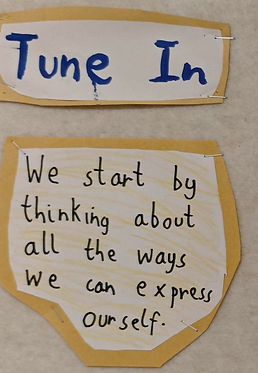 Tune In
We start by
thinking about
all the ways
we can express
ourself.